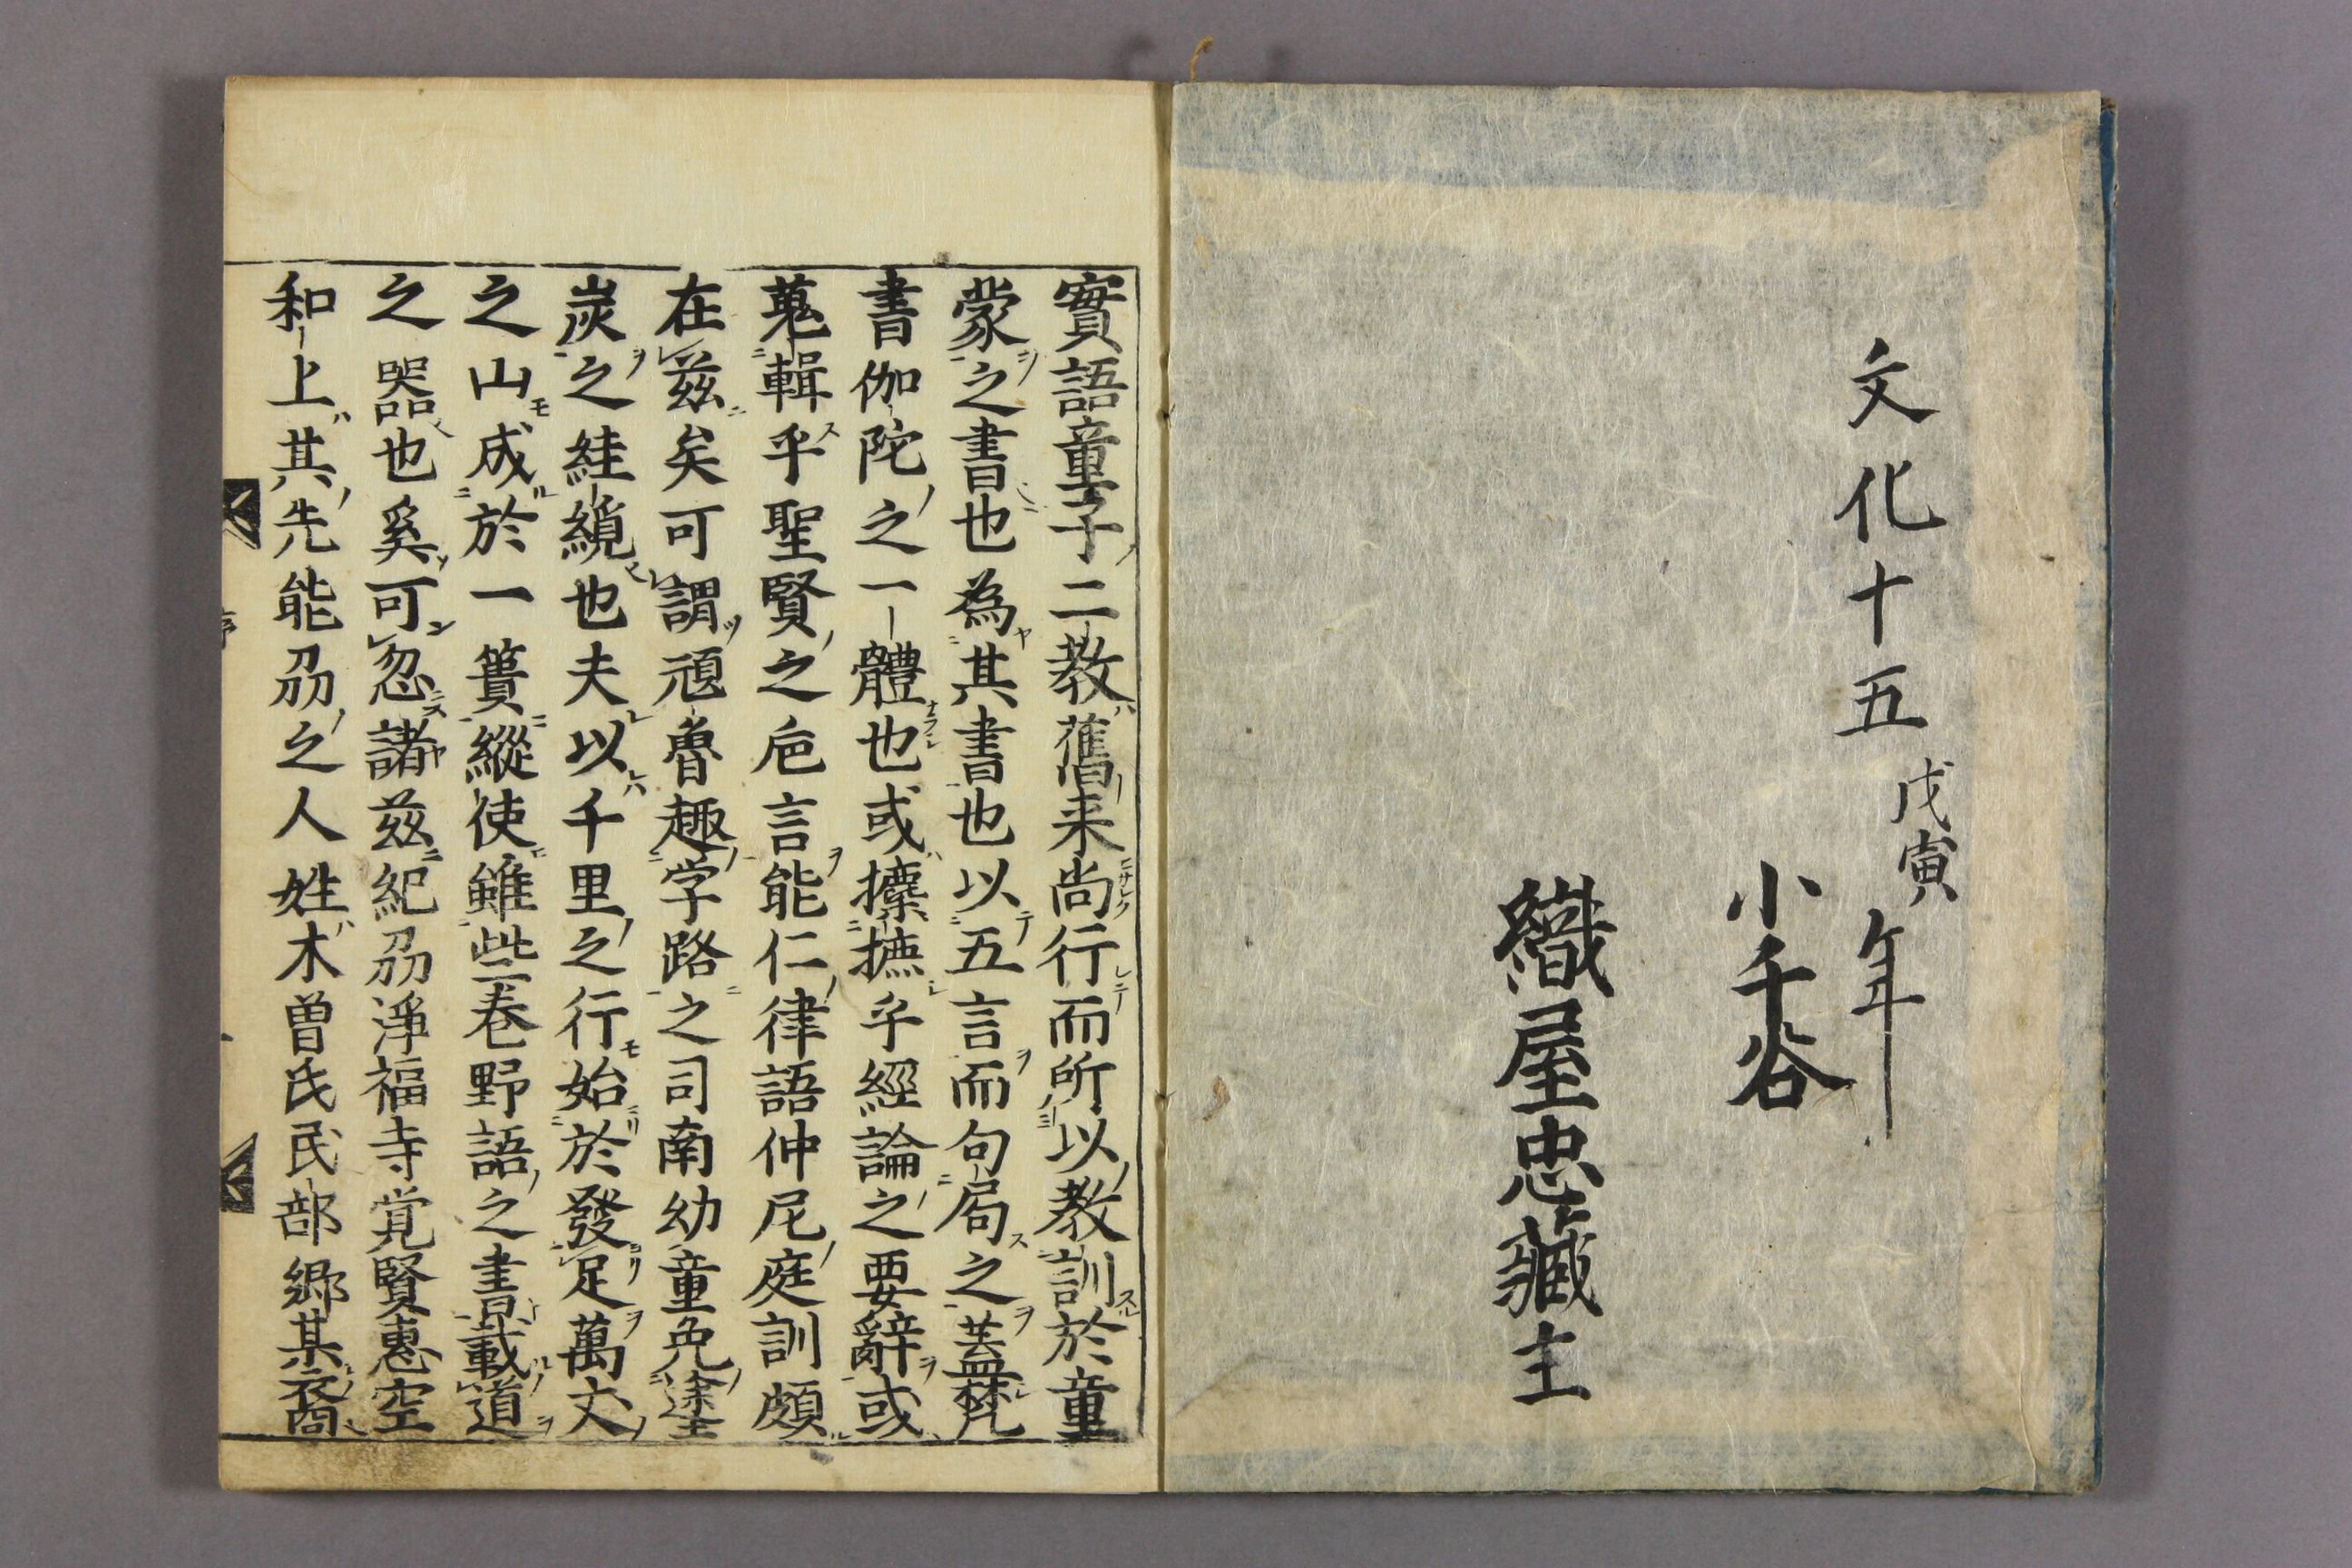 文化十五戊寅年
小千谷
織屋忠藏主
實語童子二教舊来尚行而所以教訓於童
蒙之書也為其書也以五言而句局之蓋梵
書伽陀之一體也或攗摭乎經論之要辭或
蒐輯乎聖賢之巵言能仁律語仲尼庭訓頗
在茲矣可謂頑魯趣学路之司南幼童免塗
炭之絓繞也夫以千里之行始於發足萬丈
之山成於一簣縱使雖些巻野語之書載道
之器也奚可忽諸茲紀刕淨福寺覚賢惠空
和上其先能刕之人姓木曽氏民部郷某裔
序